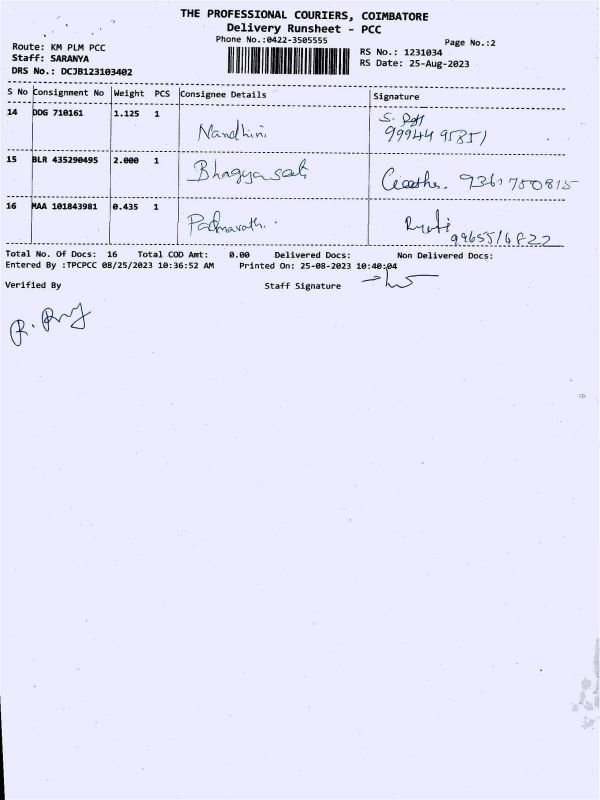 THE PROFESSIONAL COURIERS, COIMBATORE
Delivery Runsheet - PCC
Phone No.:0422-3505555
Page No.:2
Route: KM PLM PCC
Staff: SARANYA
DRS No.: DCJB123103402
RS No.: 1231034
RS Date: 25-Aug-2023
S No Consignment No Weight PCS Consignee Details Signature
14 DDG 710161 1.125 1 Nandhini
99944 95851
15 BLR 435290495 2.000 1 9361750815
16 MAA 101843981 0.435 1 Padmavathi
9965516822
Total No. Of Docs: 16 Total COD Amt: 0.00 Delivered Docs: Non Delivered Docs:
Entered By :TPCPCC 08/25/2023 10:36:52 AM Printed On: 25-08-2023 10:40:04
Verified By Staff Signature